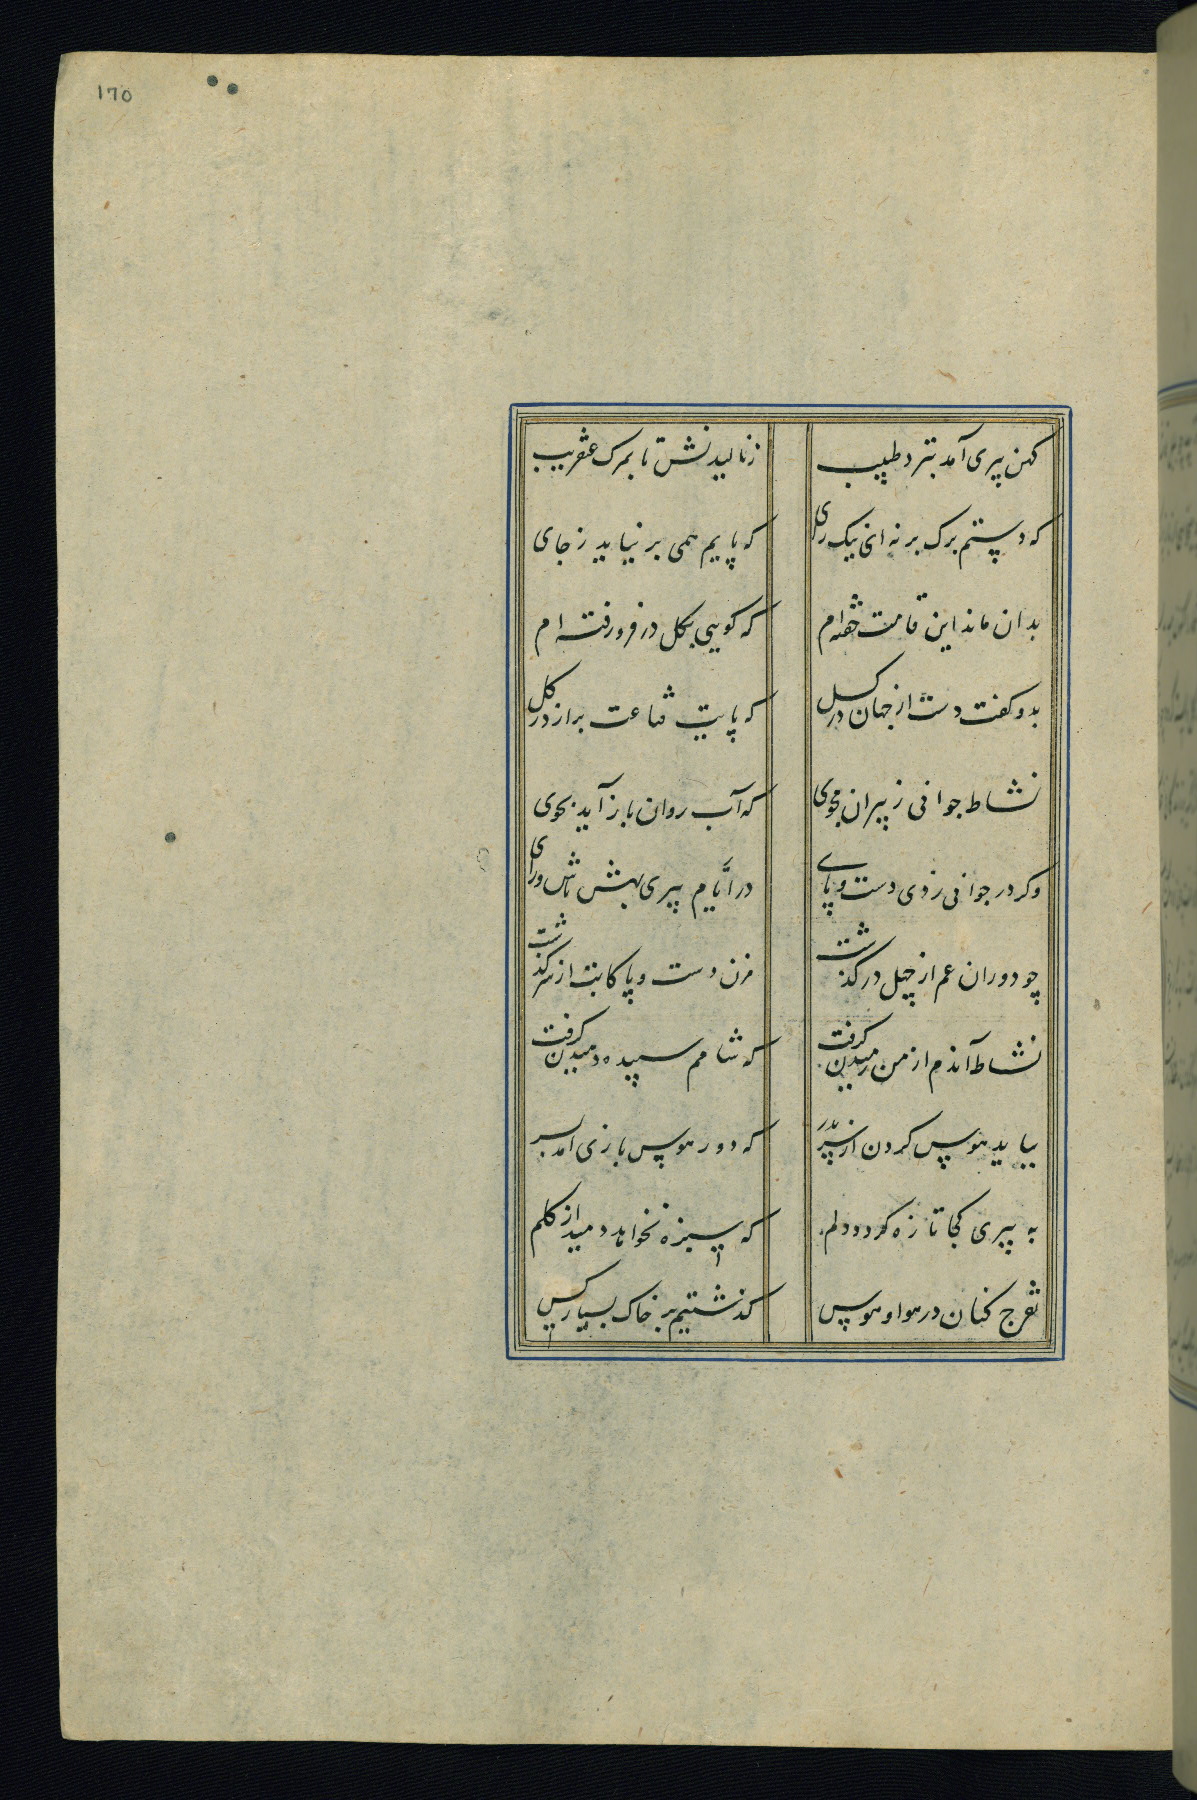 ١٦٥
کهن پیری آمد بنزد طبیب
ز نالیدنش تا بمرک عقریب
که دستم برک برنه ای نیک رای
که پایم همی بر نیاید ز جای
بدان ماند این قامت خفته ام
که کویی بکل در فرو رفته ام
بدو کفت دست از جهان در کسل
که پایت قیامت براز در کل
نشاط جوانی ز پیران مجوی
که آب روان باز آید بجوی
وکر در جوانی زدی دست و پای
در ایام پیری بهش باش ورای
چو دوران عمر از چهل در کذشت
مزن دست و پا کابت از سر کذشت
نشاط آنذم از من رمیدن کرفت
که شامم سپیده دمیدن کرفت
بباید هوس کردن از سر بدر
که دور هوس بازی امد بسر
به پیری کجا تازه کردد دلم
که سبزه نخواهد دمید از کلم
تفرج کنان در هوا و هوس
کذشتیم بر خاک بسیار کس